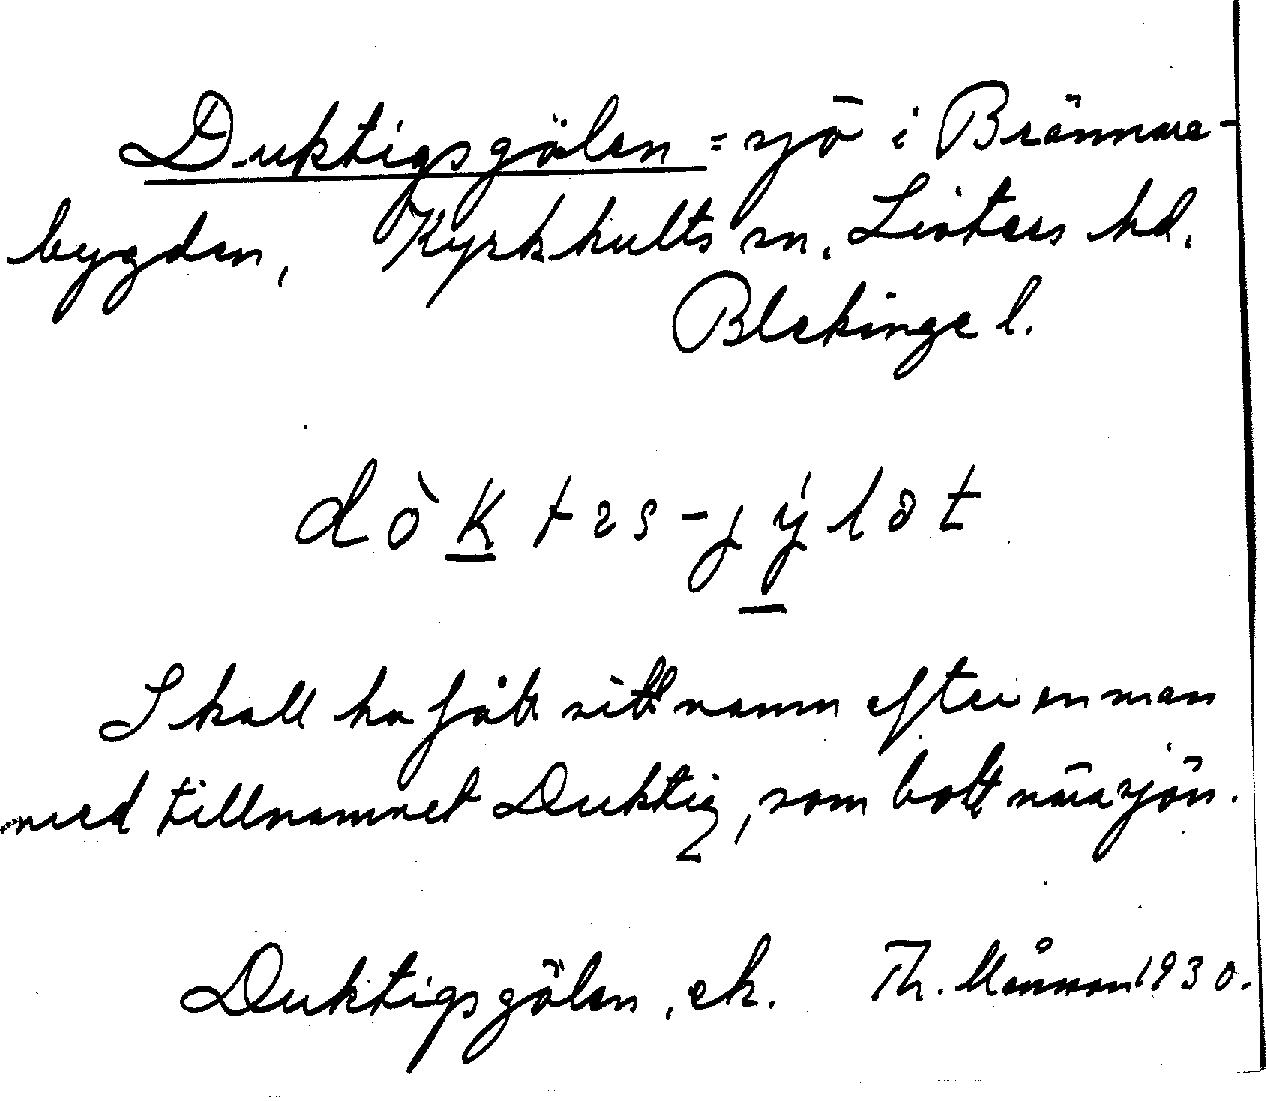 Duktigsgölen = sjö i Brännare-
bygden, Kyrkhults sn. Listers hd.
Blekinge l.
dòktəs-jýlət
Skall ha fått sitt namn efter en man
med tillnamnet Duktig, som bott nära sjön.
Duktigsgölen, ek. Th. Månsson 1930.